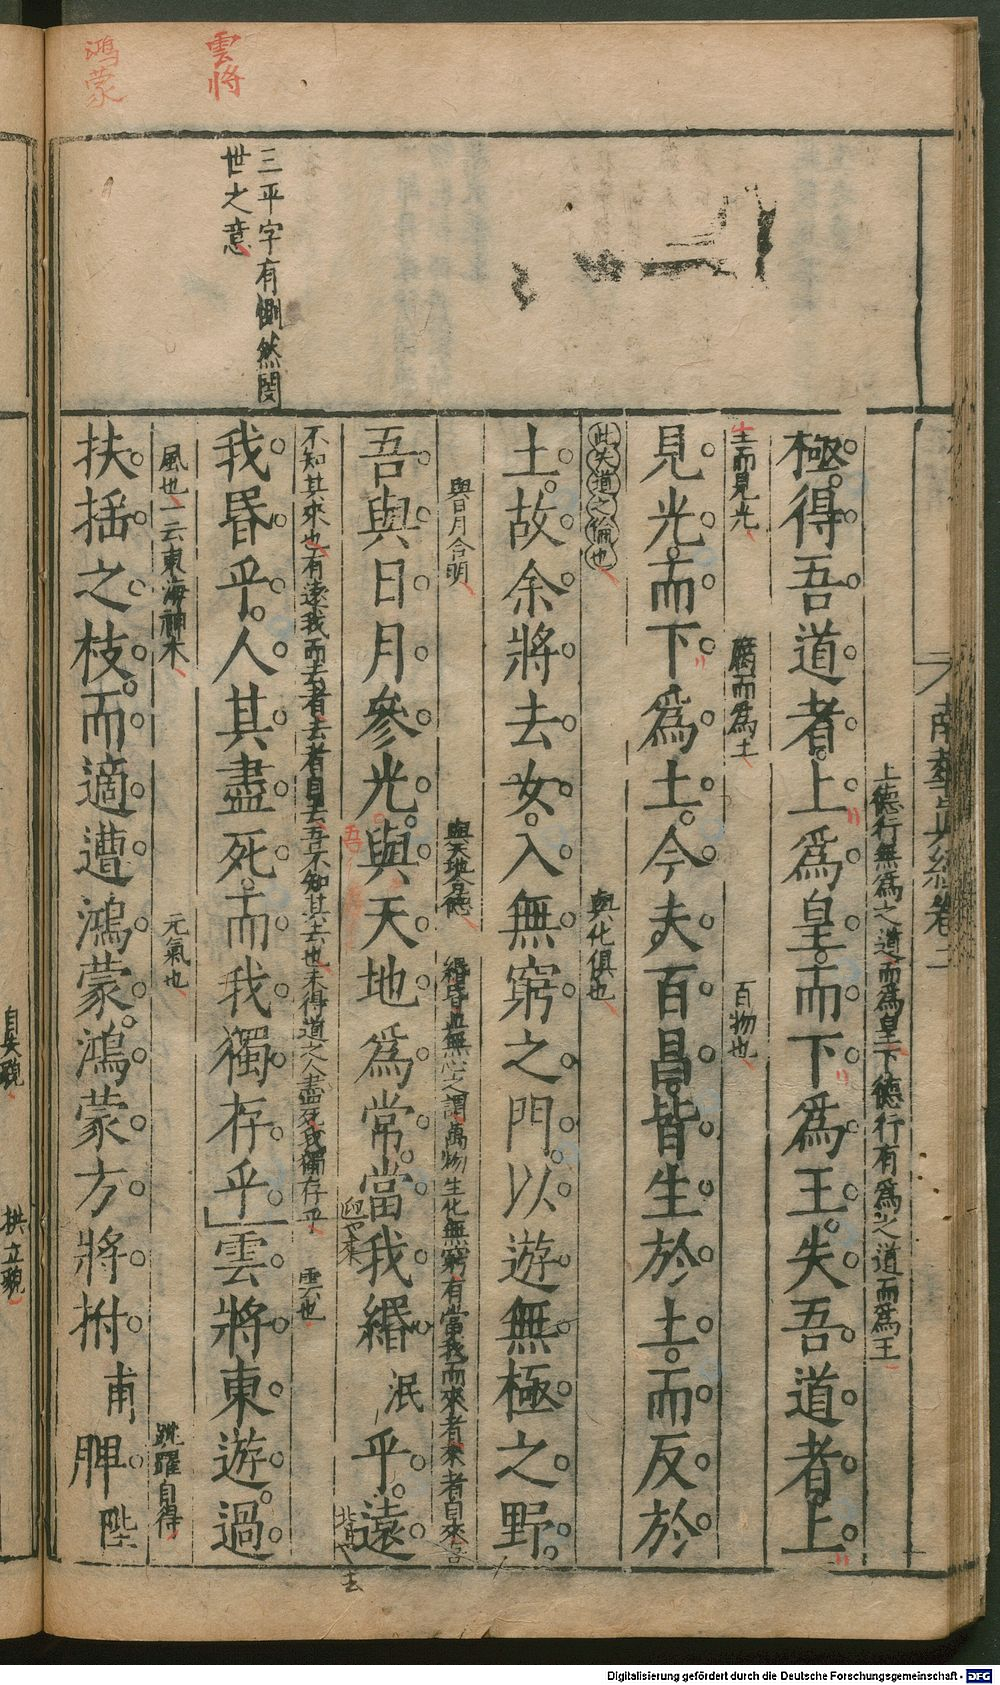 南華真經卷三
上德行無為之道而為皇下德行有為之道而為王
極得吾道者上為皇而下為王失吾道者上
生而見光 腐而為土 百物也
見光而下為土今夫百昌皆生於土而反於
此失道之倫也 與化俱也
土故余將去女入無窮之門以遊無極之野
與日月合明 與天地合德 緡昏並無心之謂萬物生化無窮有當我而來者來者自來吾
吾與日月參光吾與天地為常當我緡泯乎遠
迎也來 背也去
不知其來也有遠我而去者去者自去吾不知其去也未得道之人盡死我獨存乎 雲也
三乎字有惻然閔
世之意
雲將
我昬乎人其盡死而我獨存乎雲將東遊過
風也一云東海神木 元氣也 跳躍自得
鴻蒙
扶揺之枝而適遭鴻蒙鴻蒙方將拊甫脾陛
自失貌
拱立貌
Digitalisierung gefördert durch die Deutsche Forschungsgemeinschaft - DFG